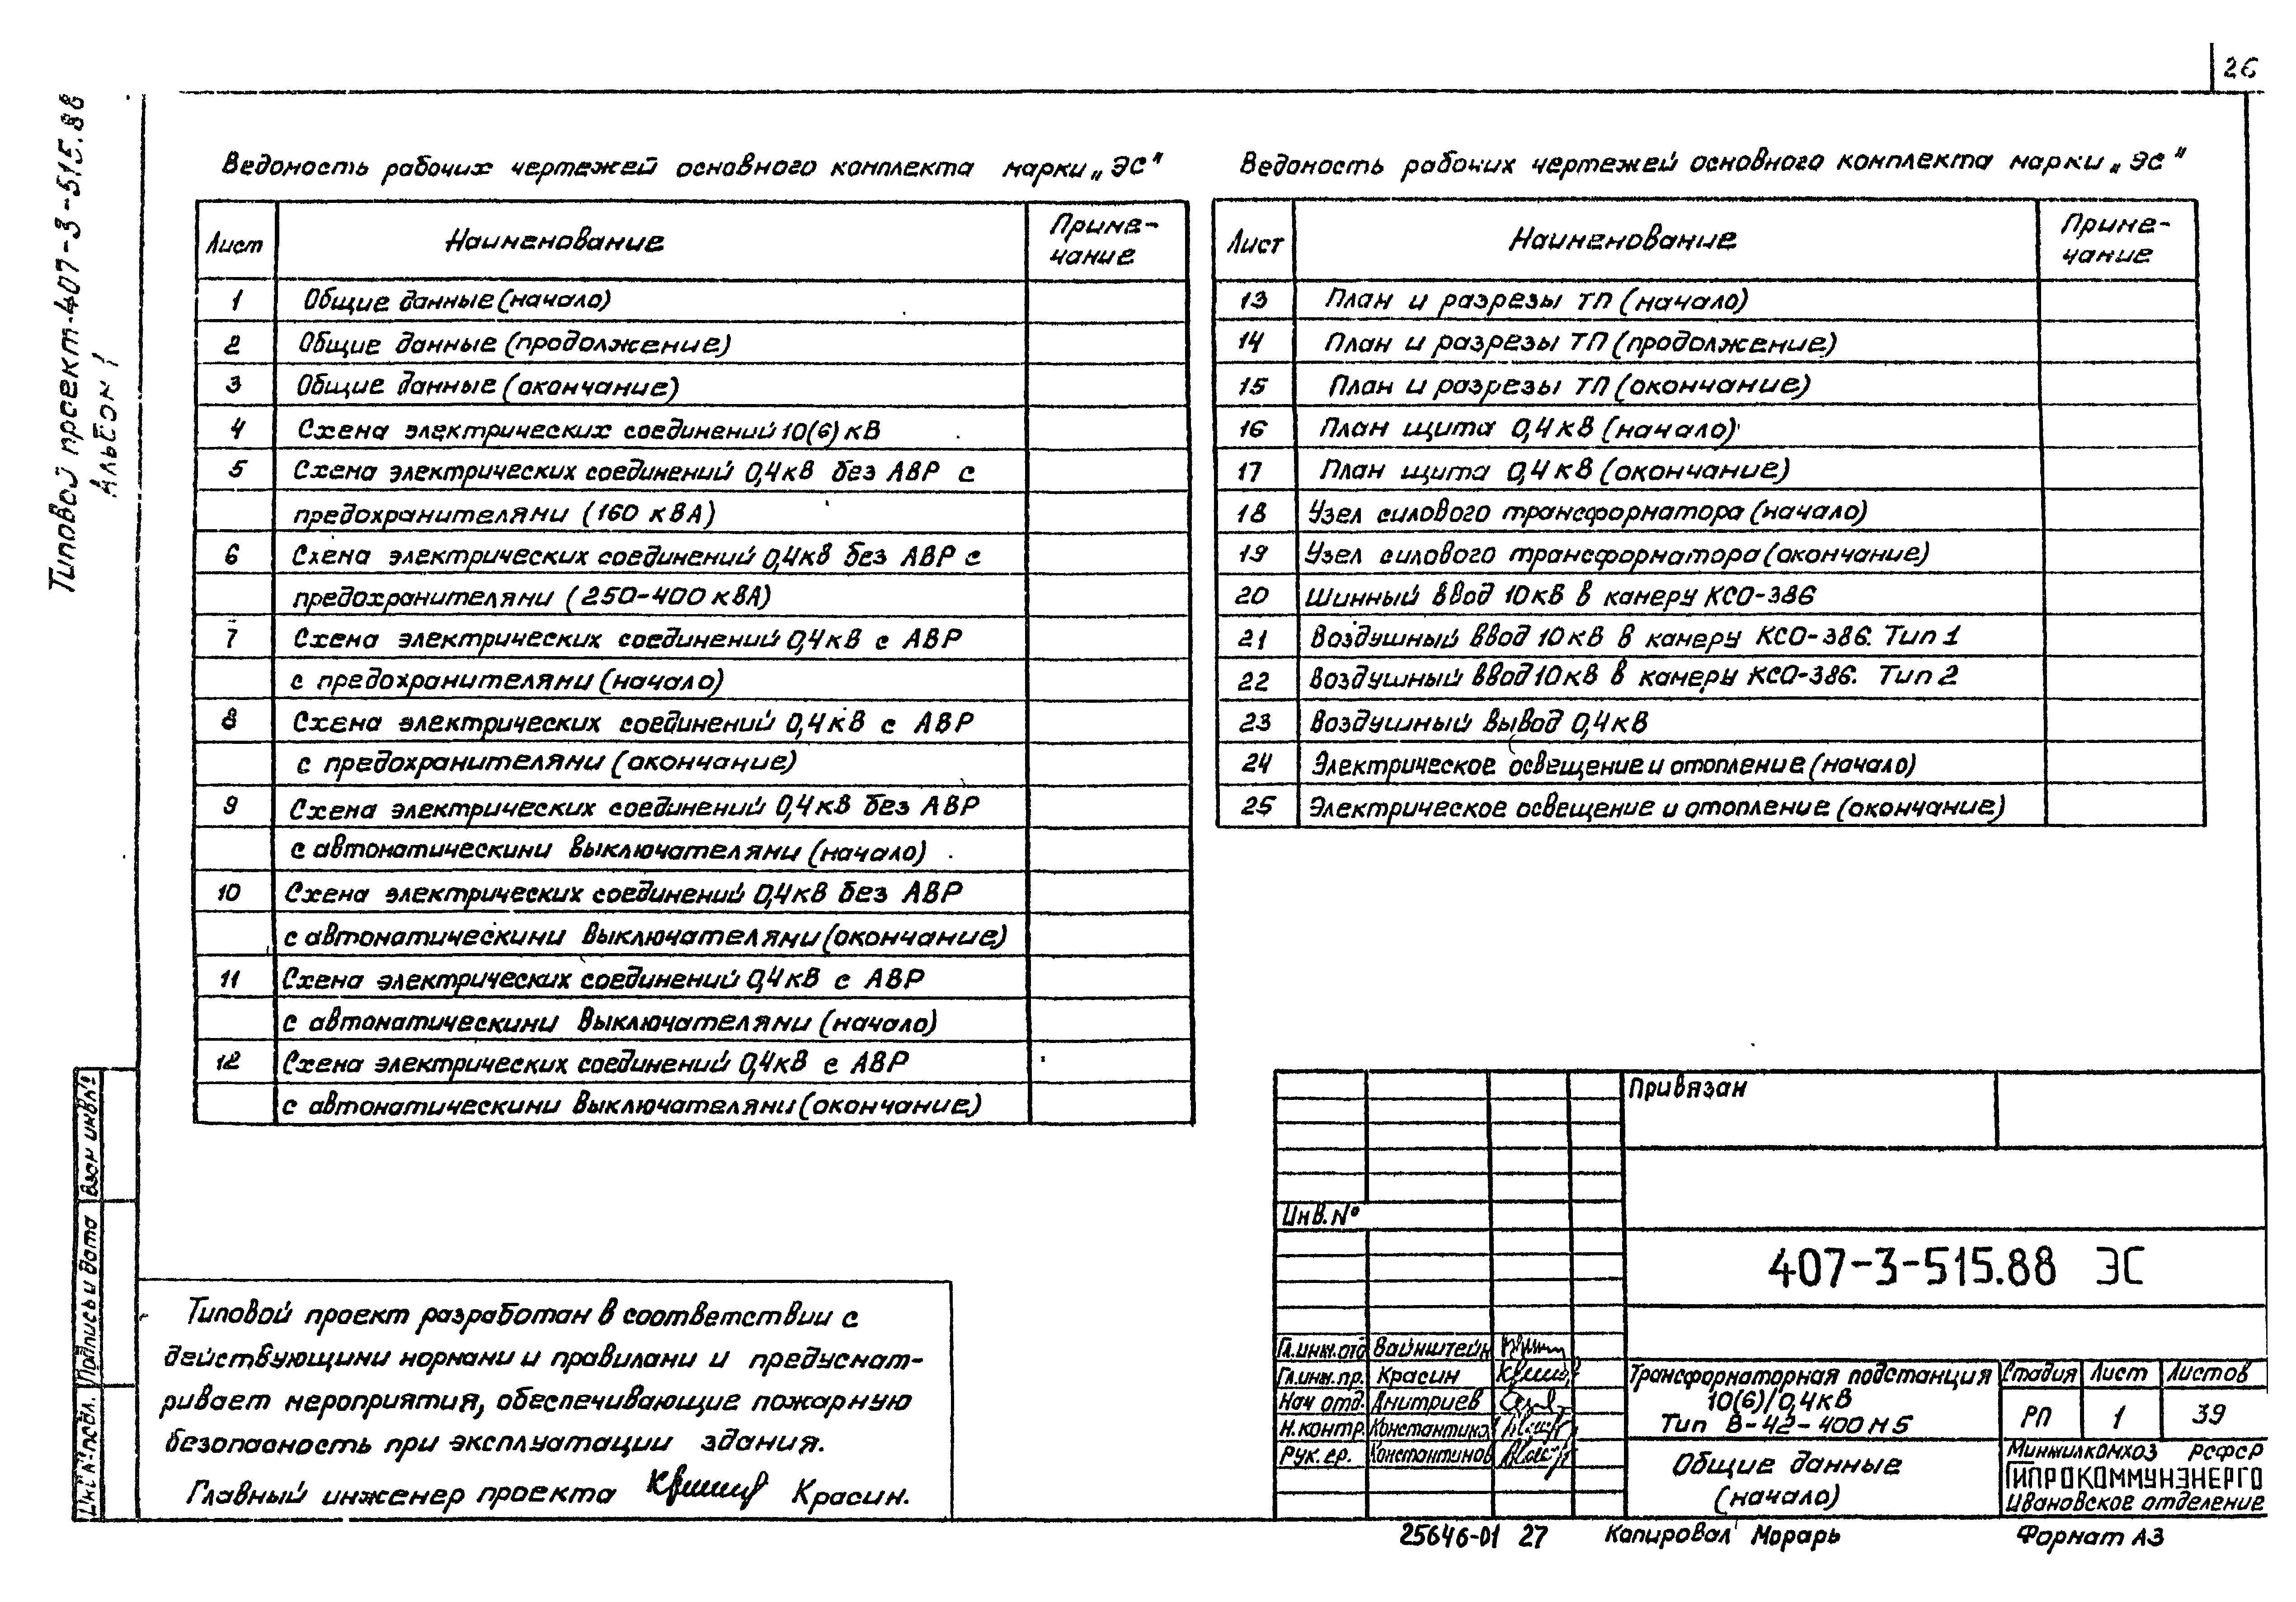 26
Типовой проект 407-3-515.88
Альбом 1
Ведомость рабочих чертежей основного комплекта марки „ЭС"
Лист Наименование Приме-
чание
1 Общие данные (начало)
2 Общие данные (продолжение)
3 Общие данные (окончание)
4 Схема электрических соединений 10(6) кВ
5 Схема электрических соединений 0,4кВ без АВР с
предохранителями (160 кВА)
6 Схема электрических соединений 0,4кВ без АВР с
предохранителями (250-400 кВА)
7 Схема электрических соединений 0,4кВ с АВР
с предохранителями (начало)
8 Схема электрических соединений 0,4кВ с АВР
с предохранителями (окончание)
9 Схема электрических соединений 0,4кВ без АВР
с автоматическими выключателями (начало)
10 Схема электрических соединений 0,4кВ без АВР
с автоматическими выключателями (окончание)
11 Схема электрических соединений 0,4кВ с АВР
с автоматическими выключателями (начало)
12 Схема электрических соединений 0,4кВ с АВР
с автоматическими выключателями (окончание)
Ведомость рабочих чертежей основного комплекта марки „ЭС"
Лист Наименование Приме-
чание
13 План и разрезы ТП (начало)
14 План и разрезы ТП (продолжение)
15 План и разрезы ТП (окончание)
16 План щита 0,4кВ (начало)
17 План щита 0,4кВ (окончание)
18 Узел силового трансформатора (начало)
19 Узел силового трансформатора (окончание)
20 Шинный ввод 10кВ в камеру КСО-386
21 Воздушный ввод 10кВ в камеру КСО-386. Тип 1
22 Воздушный ввод 10кВ в камеру КСО-386. Тип 2
23 Воздушный вывод 0,4кВ
24 Электрическое освещение и отопление (начало)
25 Электрическое освещение и отопление (окончание)
Типовой проект разработан в соответствии с
действующими нормами и правилами и предусмат-
ривает мероприятия, обеспечивающие пожарную
безопасность при эксплуатации здания.
Главный инженер проекта Красин.
Взам инв№
Подпись и дата
Инв № подл.
Привязан
Инв. №
407-3-515.88 ЭС
Гл.инж.отд Вайнштейн
Гл.инж.пр. Красин
Нач отд. Дмитриев
Н.контр. Константинов
Рук. гр. Константинов
Трансформаторная подстанция
10(6)/0,4кВ
Тип В-42-400М5
Стадия Лист Листов
РП 1 39
Общие данные
(начало)
Минжилкомхоз РСФСР
ГИПРОКОММУНЭНЕРГО
Ивановское отделение
25646-01 27 Копировал Морарь Формат А3